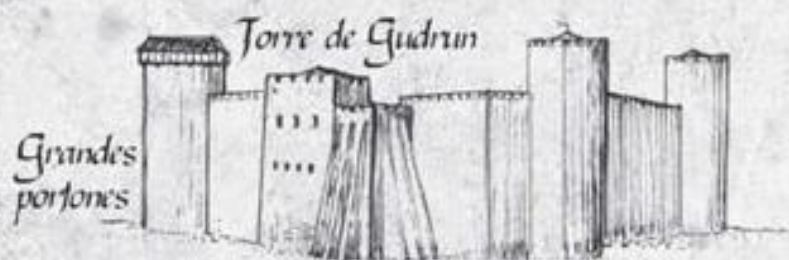 Torre de Gudrun
Grandes
portones